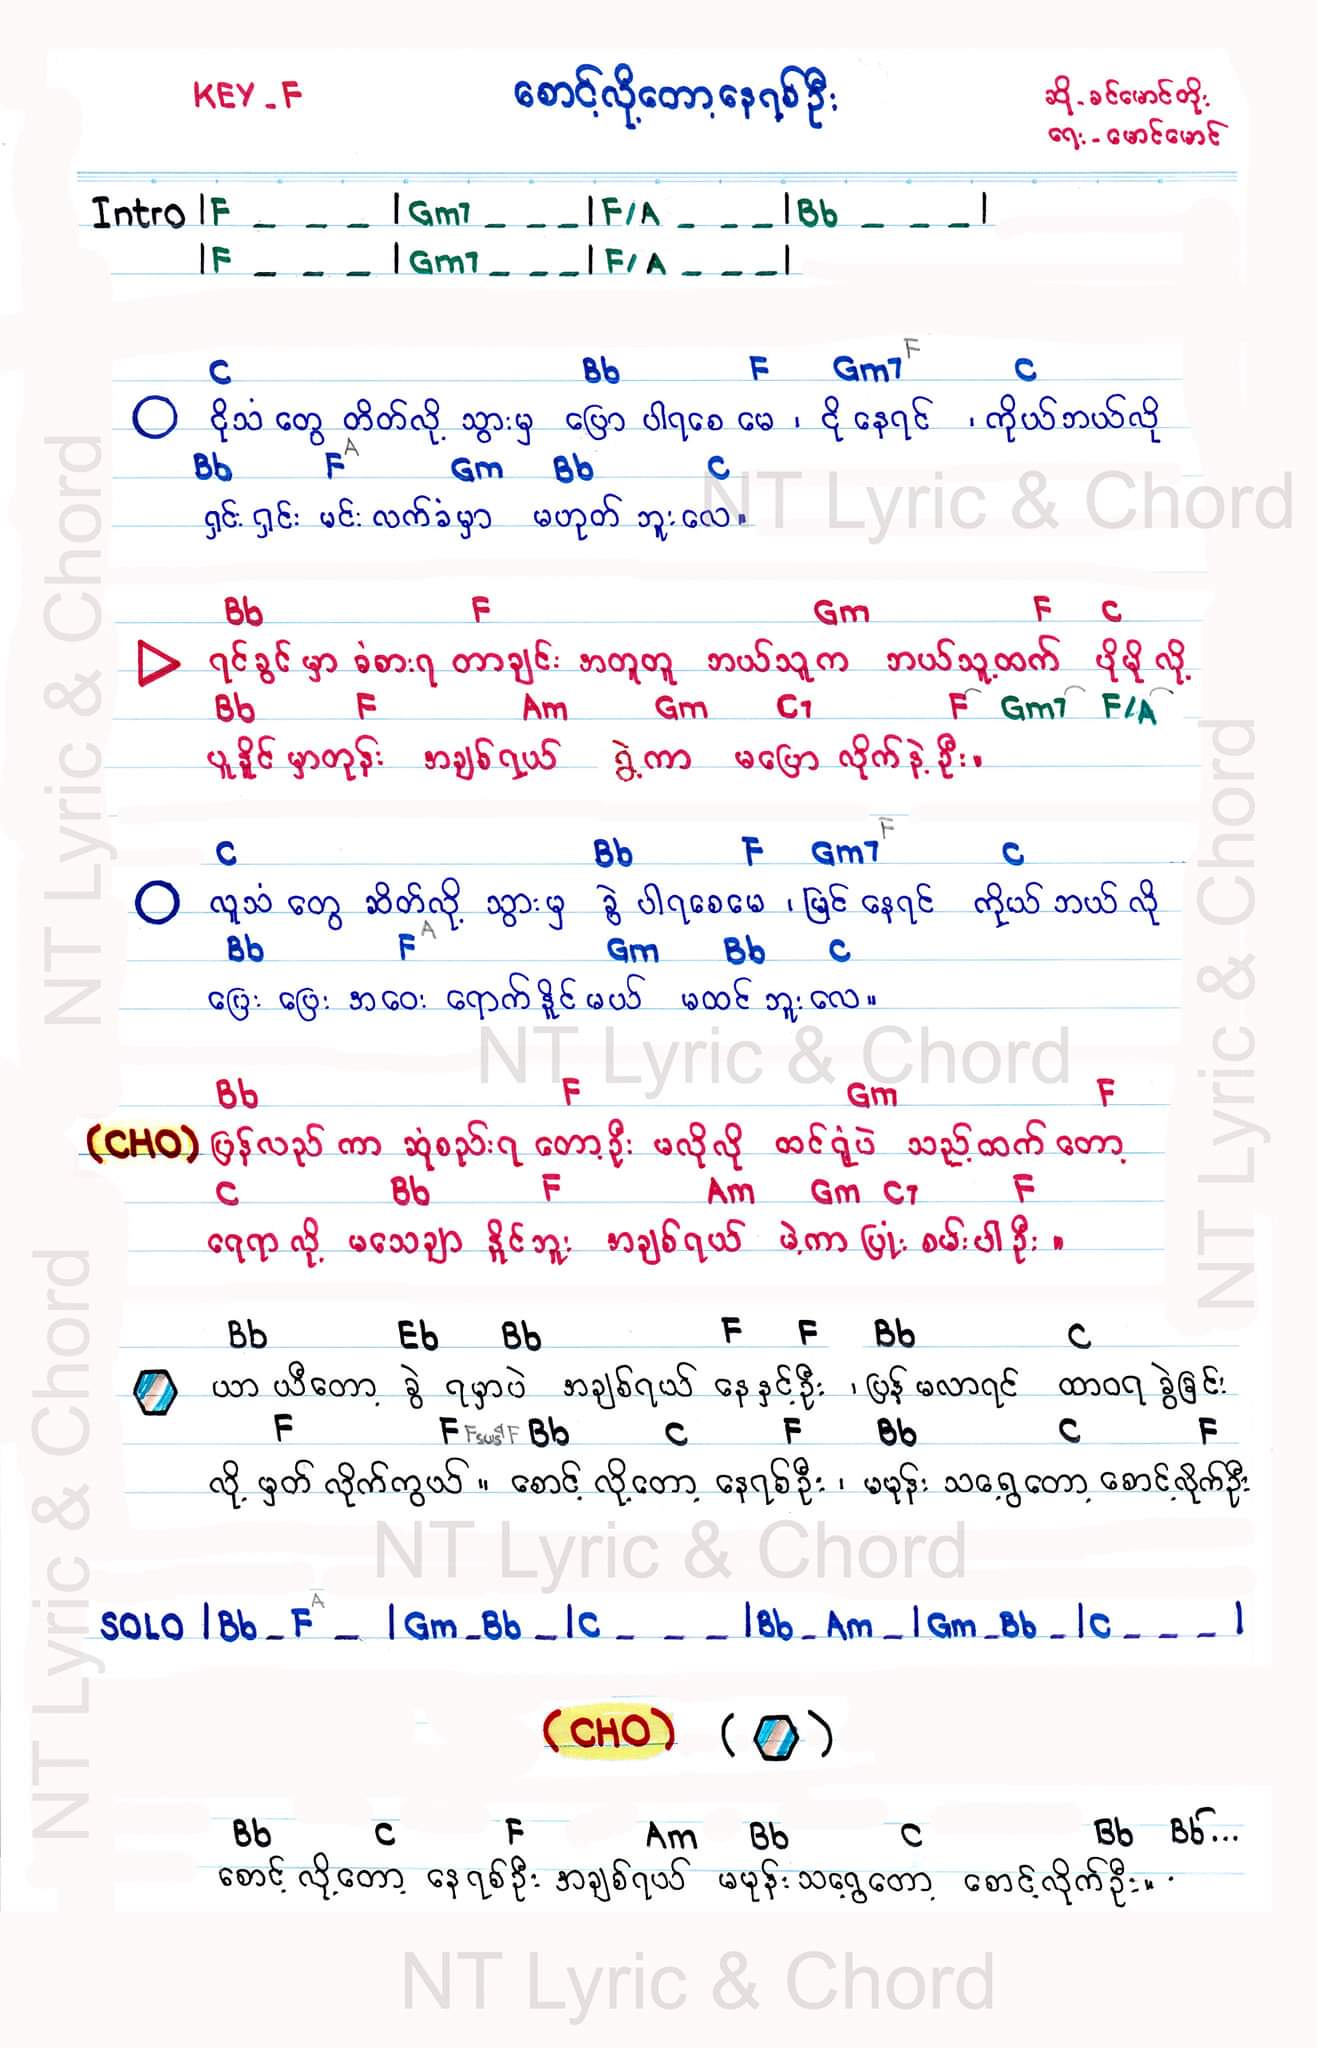 KEY - F
စောင့်လို့တော့နေရစ်ဦး
ဆို - ခင်မောင်တိုး
ရေး - မောင်မောင်
Intro |F _ _ _ |Gm7 _ _ _ |F/A _ _ _ |Bb _ _ _ |
|F _ _ _ |Gm7 _ _ _ |F/A _ _ _ |
C Bb F Gm7 F C
ငိုသံ တွေ တိတ်လို့ သွားမှ ပြော ပါရစေ မေ ၊ ငို နေရင် ၊ ကိုယ်ဘယ်လို
Bb F A Gm Bb C
ရှင်း ရှင်း မင်း လက်ခံမှာ မဟုတ် ဘူးလေ။
Bb F Gm F C
ရင်ခွင် မှာ ခံစားရ တာချင်း အတူတူ ဘယ်သူက ဘယ်သူ့ထက် ပိုမို လို့
Bb F Am Gm C7 F Gm7 F/A
ယူနိုင် မှာတုန်း အချစ်ရယ် ရွဲ့ကာ မပြော လိုက်နဲ့ ဦး။
C Bb F Gm7 F C
လူသံ တွေ ဆိတ်လို့ သွားမှ ခွဲ ပါရစေမေ ၊ မြင် နေရင် ကိုယ် ဘယ် လို
Bb F A Gm Bb C
ပြေး ပြေး အဝေး ရောက် နိုင် မယ် မထင် ဘူး လေ။
Bb F Gm F
(CHO) ပြန်လည် ကာ ဆုံစည်းရ တော့ဦး မလိုလို ထင်ရုံပဲ သည့်ထက် တော့
C Bb F Am Gm C7 F
ရေရာ လို့ မသေချာ နိုင်ဘူး အချစ်ရယ် မဲ့ကာ ပြုံး စမ်းပါ ဦး။
Bb Eb Bb F F Bb C
ယာ ယီတော့ ခွဲ ရမှာပဲ အချစ်ရယ် နေနှင့်ဦး ၊ ပြန် မလာရင် ထာဝရ ခွဲခြင်း
F F Fsus4 F Bb C F Bb C F
လို့ မှတ် လိုက်ကွယ်။ စောင့် လို့တော့ နေရစ်ဦး ၊ မမုန်း သရွေ့တော့ စောင့်လိုက်ဦး
SOLO |Bb _ F A _ |Gm _ Bb _ |C _ _ _ |Bb _ Am _ |Gm _ Bb _ |C _ _ _ |
(CHO) ( )
Bb C F Am Bb C Bb Bb...
စောင့် လို့တော့ နေရစ်ဦး အချစ်ရယ် မမုန်းသရွေ့တော့ စောင့်လိုက်ဦး။
NT Lyric & Chord
NT Lyric & Chord
NT Lyric & Chord
NT Lyric & Chord
NT Lyric & Chord
NT Lyric & Chord
NT Lyric & Chord